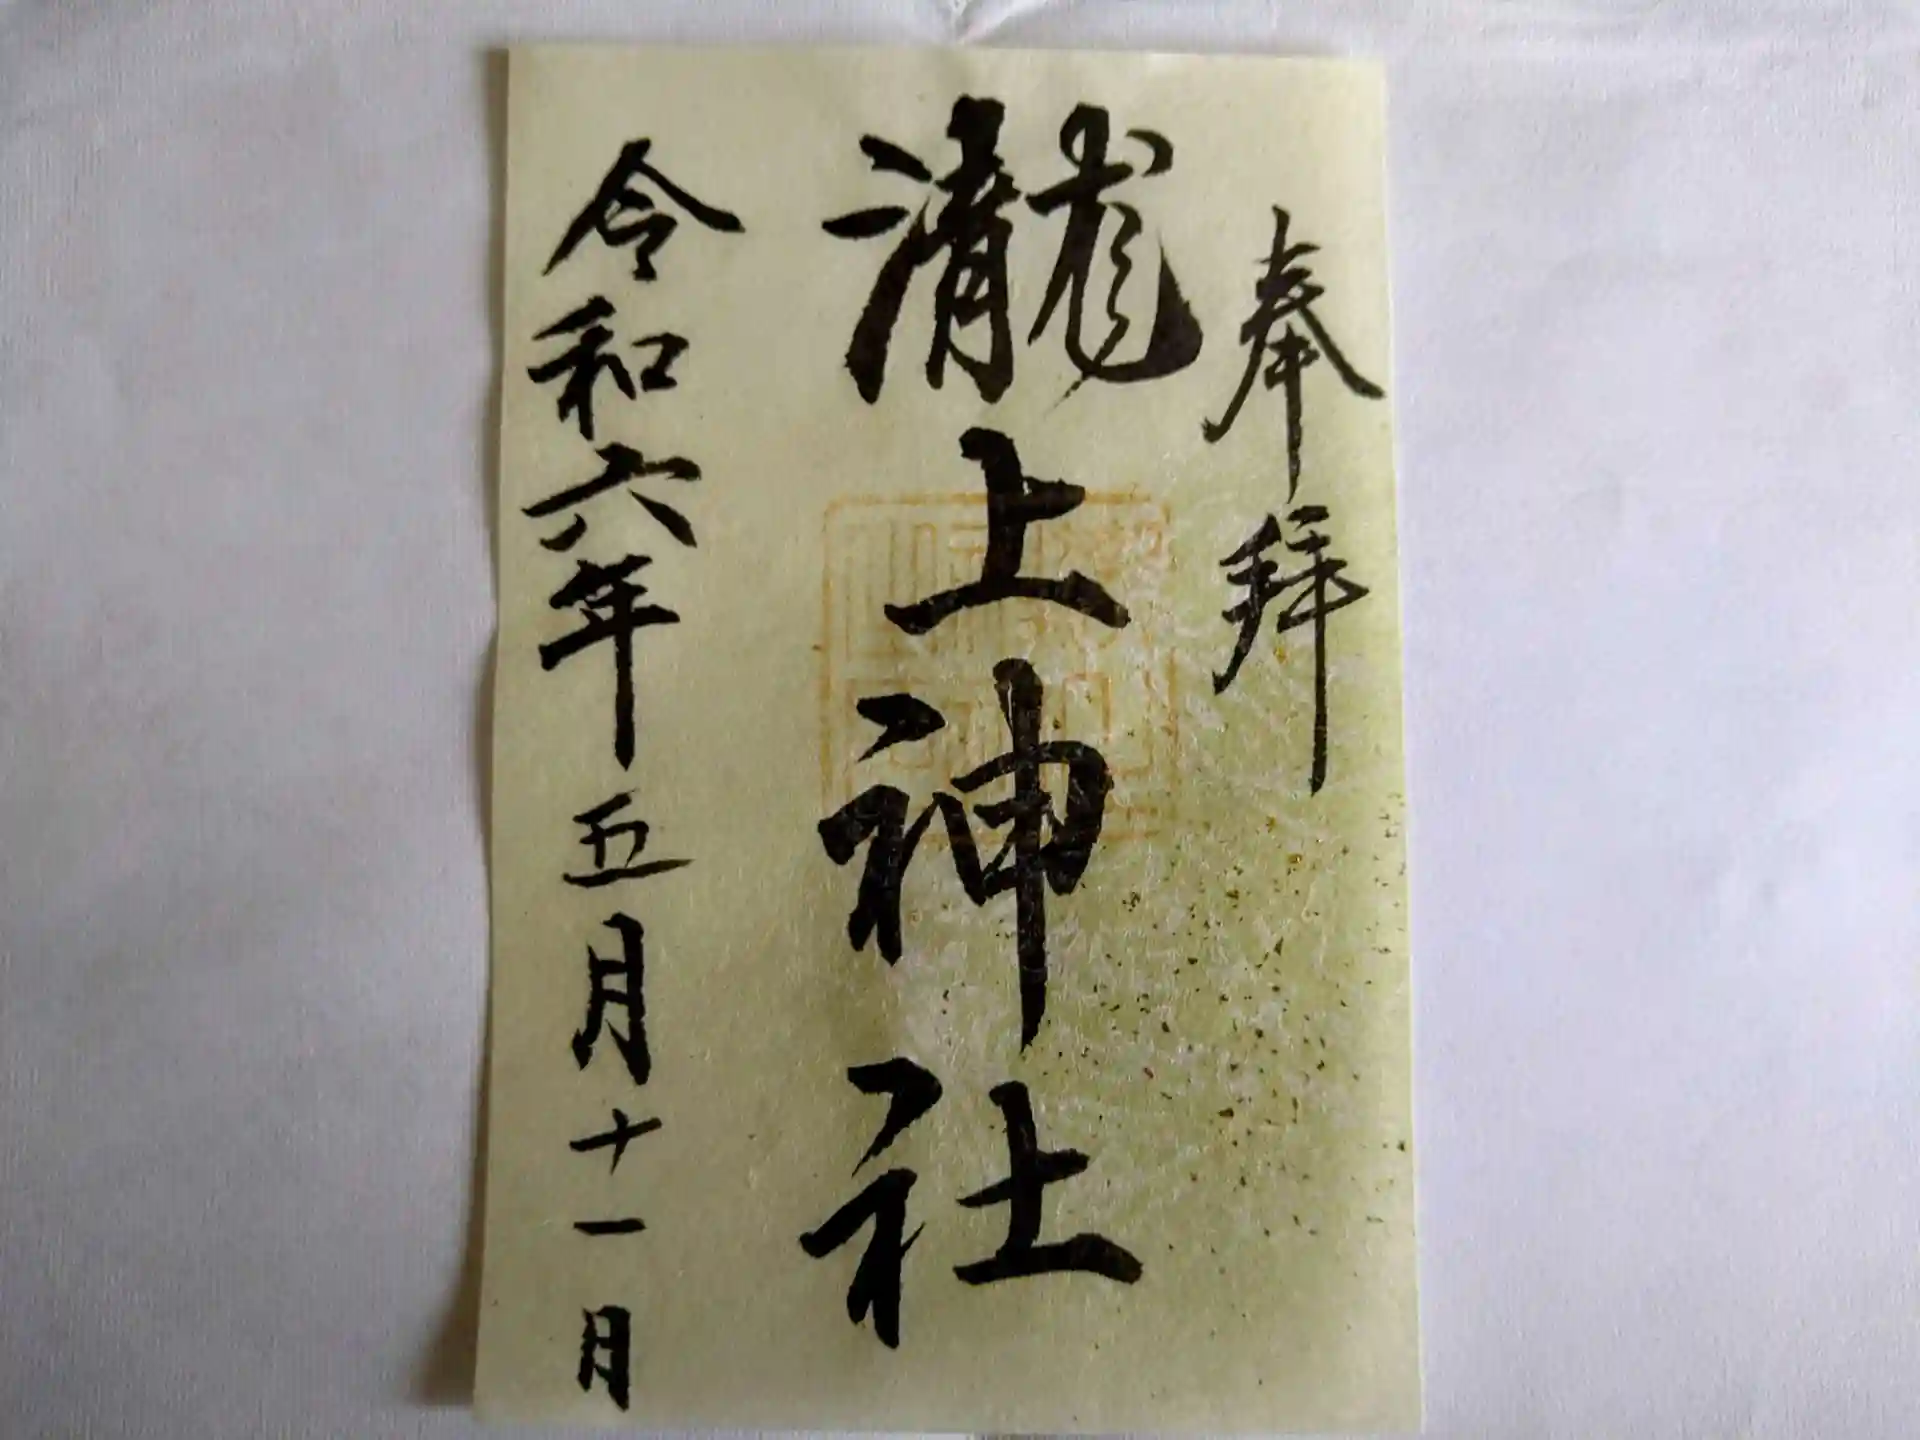 奉拝
瀧上神社
令和六年五月十一日